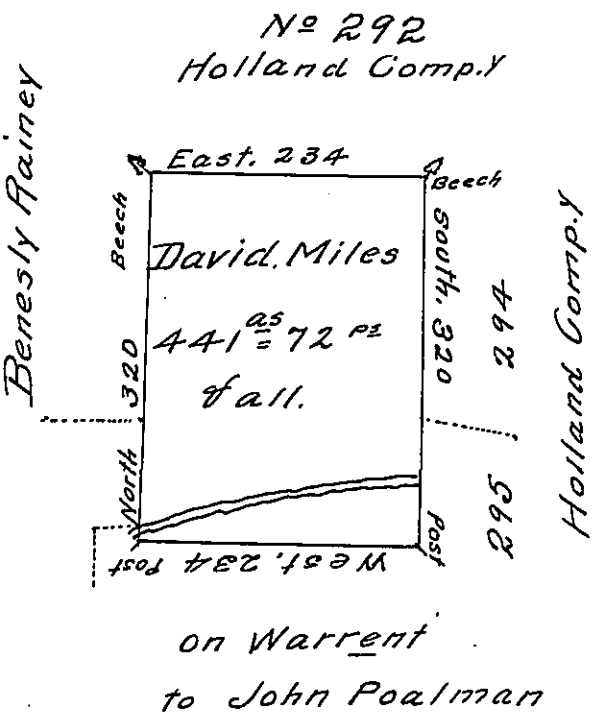 Nº 292
Holland Comp.y
Benesly Rainey
East. 234
Beech
Beech
David. Miles
441 as = 72 ps
& all.
North 320
South. 320
294
Holland Comp.y
295
Post
West. 234 Post
on Warrent
to John Poalman